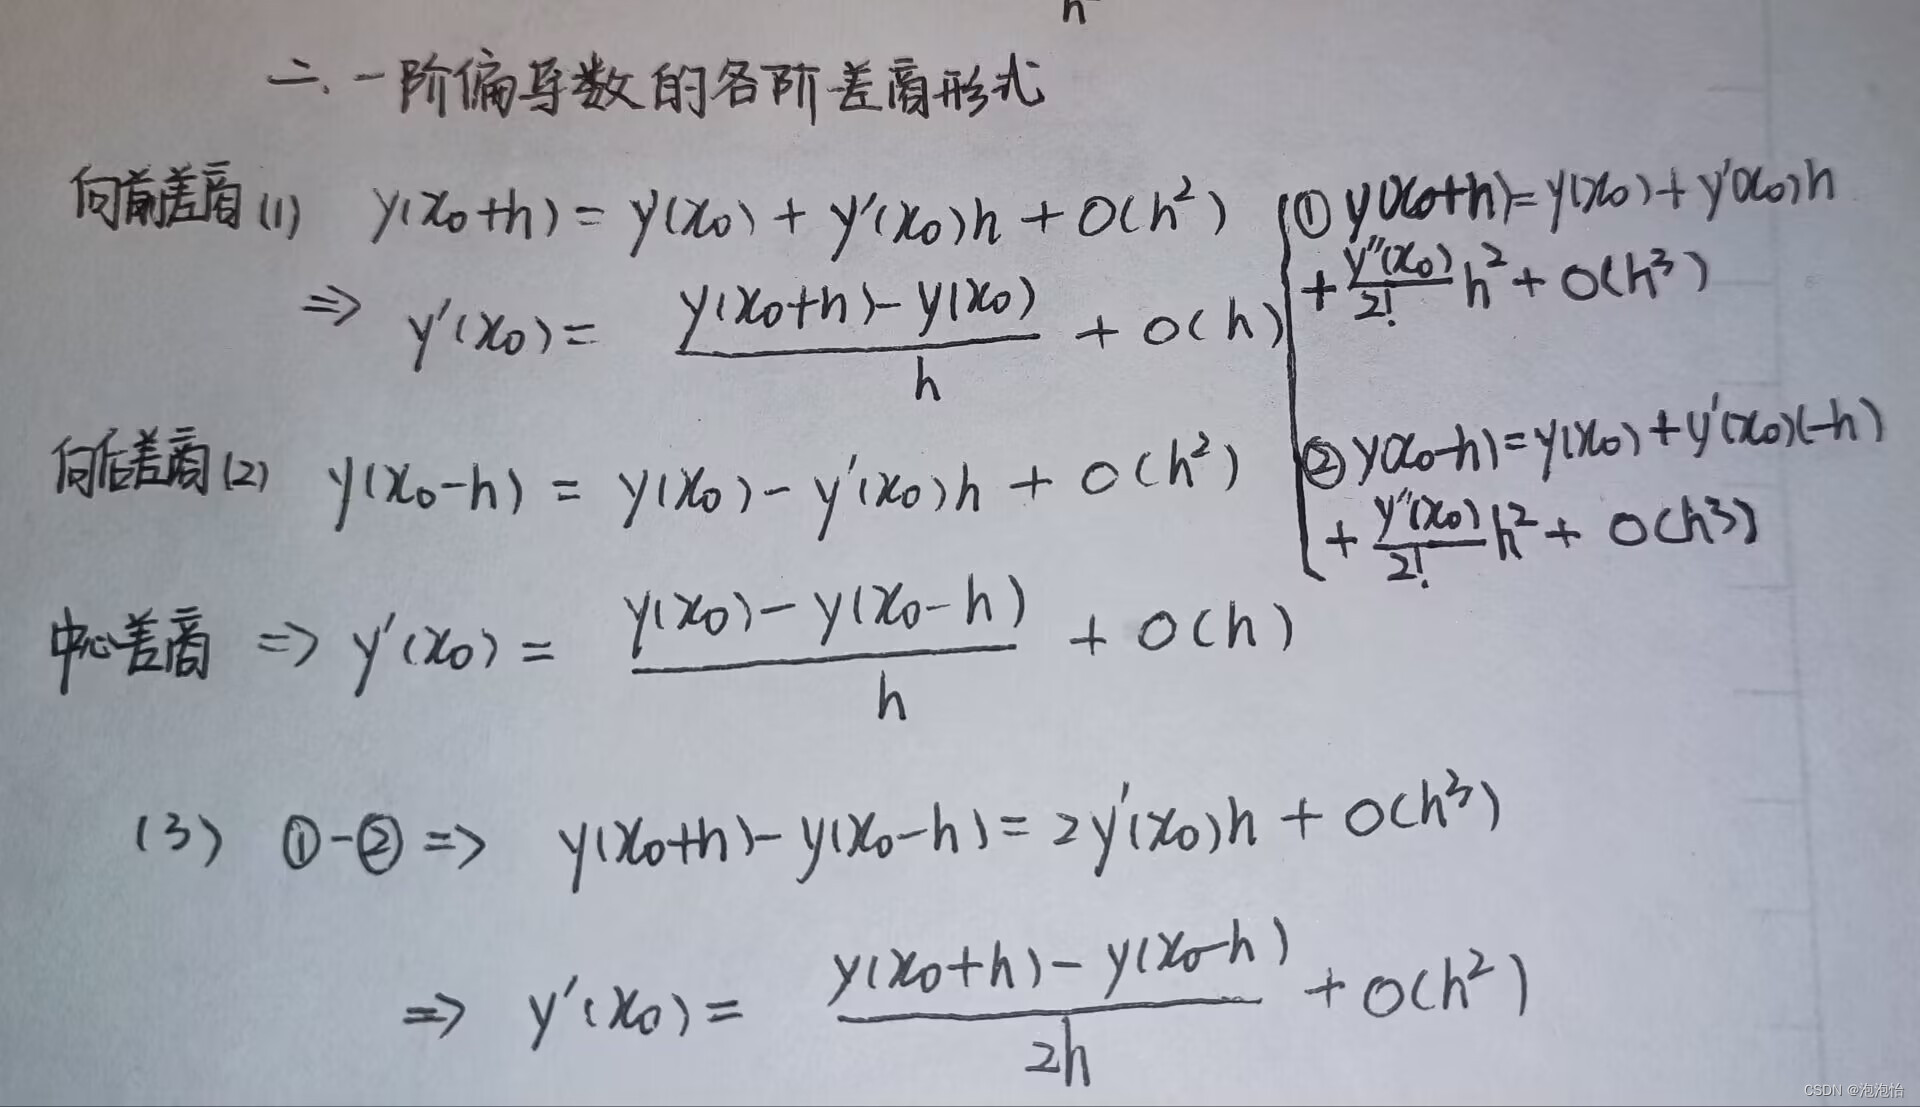 h
二、一阶偏导数的各阶差商形式
向前差商 (1) y(x₀+h) = y(x₀) + y'(x₀)h + O(h²)
⇒ y'(x₀) = (y(x₀+h) - y(x₀))/h + O(h)
① y(x₀+h) = y(x₀) + y'(x₀)h
+ y''(x₀)/2! h² + O(h³)
② y(x₀-h) = y(x₀) + y'(x₀)(-h)
+ y''(x₀)/2! h² + O(h³)
向后差商 (2) y(x₀-h) = y(x₀) - y'(x₀)h + O(h²)
中心差商 ⇒ y'(x₀) = (y(x₀) - y(x₀-h))/h + O(h)
(3) ①-② ⇒ y(x₀+h) - y(x₀-h) = 2y'(x₀)h + O(h³)
⇒ y'(x₀) = (y(x₀+h) - y(x₀-h))/2h + O(h²)
CSDN @泡泡怡